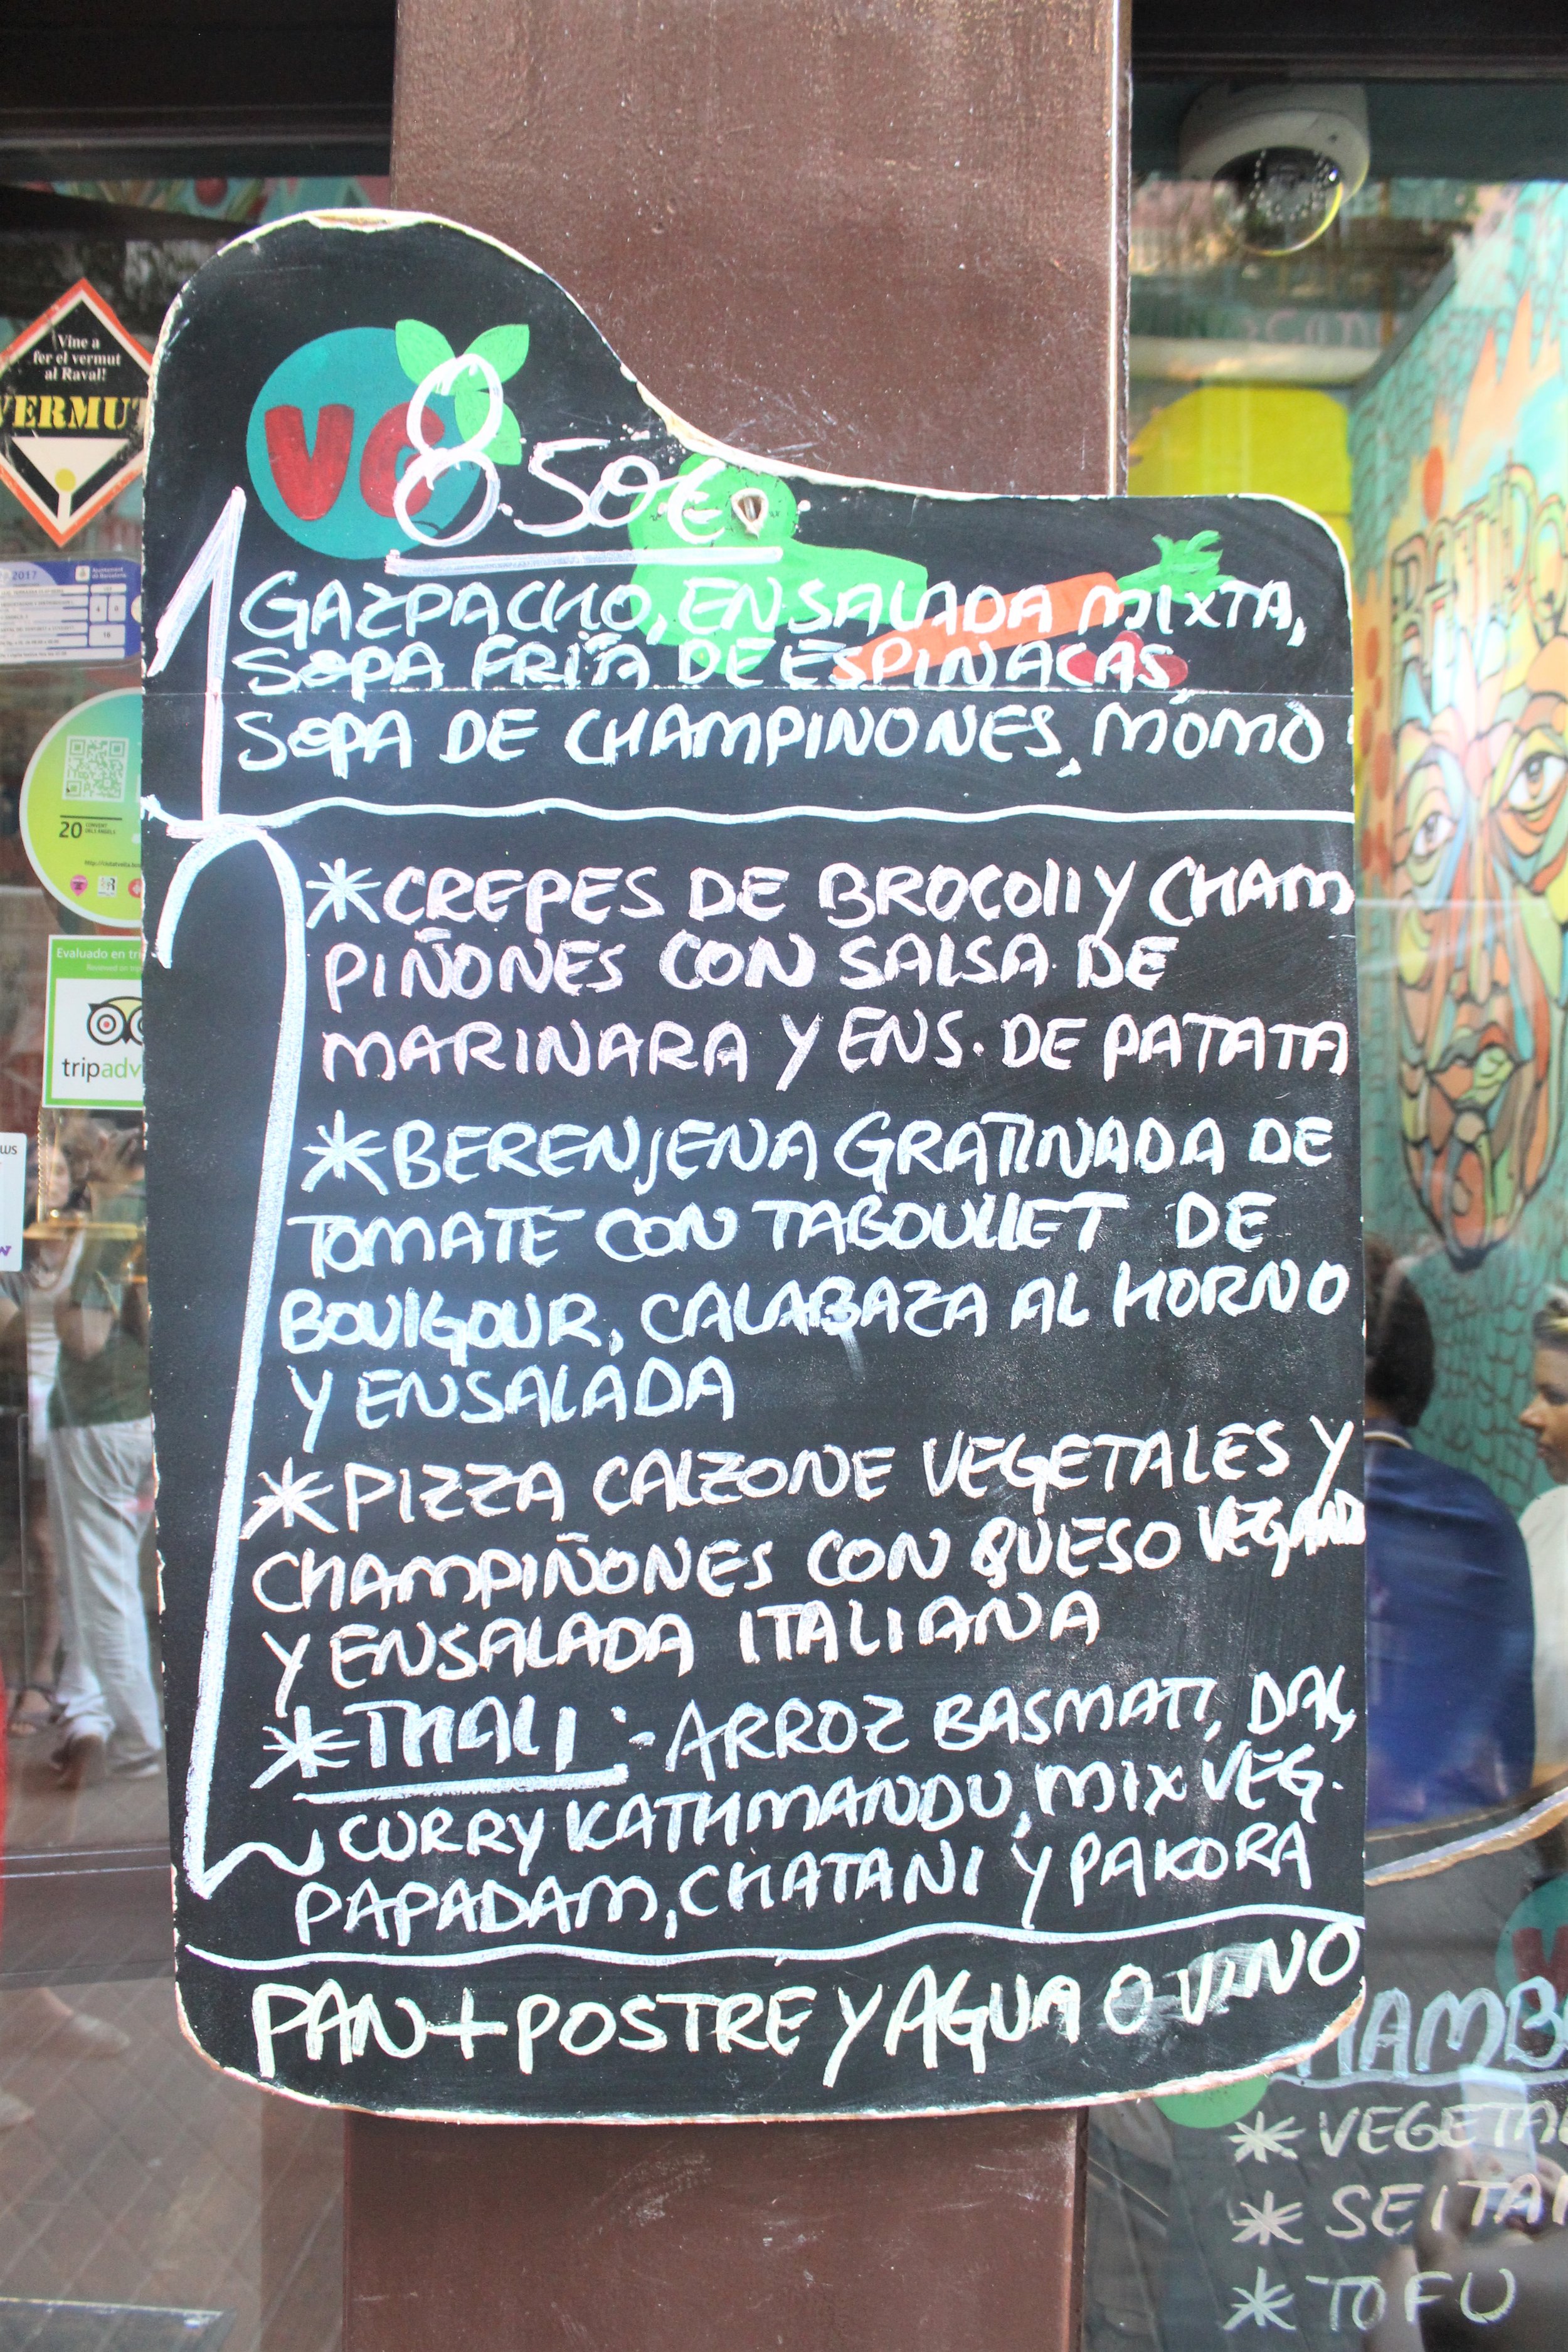 VC
8.50€
1
GAZPACHO, ENSALADA MIXTA,
SOPA FRIA DE ESPINACAS,
SOPA DE CHAMPINONES, MOMO
*CREPES DE BROCOLI Y CHAM
PIÑONES CON SALSA DE
MARINARA Y ENS. DE PATATA
*BERENJENA GRATINADA DE
TOMATE CON TABOULLET DE
BOULGOUR, CALABAZA AL HORNO
Y ENSALADA
*PIZZA CALZONE VEGETALES Y
CHAMPIÑONES CON QUESO VEGANO
Y ENSALADA ITALIANA
*THALI :- ARROZ BASMATI, DAL,
CURRY KATHMANDU, MIX VEG.
PAPADAM, CHATANI Y PAKORA
PAN + POSTRE Y AGUA O VINO
Vine a
fer el vermut
al Raval!
VERMUT
2017
Ajuntament
de Barcelona
20 CONVENT
DELS ÀNGELS
Evaluado en tri
Reviewed on trip
tripadv
HAMB
* VEGETA
* SEITA
* TOFU